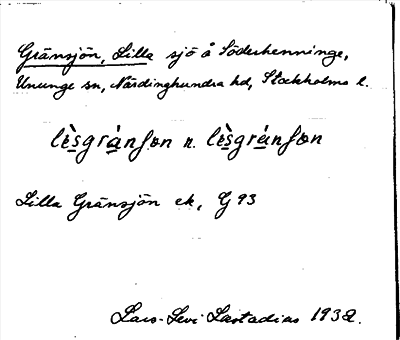 Gränsjön, Lilla sjö å Söderhenninge,
Ununge sn, Närdinghundra hd, Stockholms l.
lèsgránʃøn n. lèsgránʃøn
Lilla Gränsjön ek, G 93
Lars-Levi Læstadius 1932.